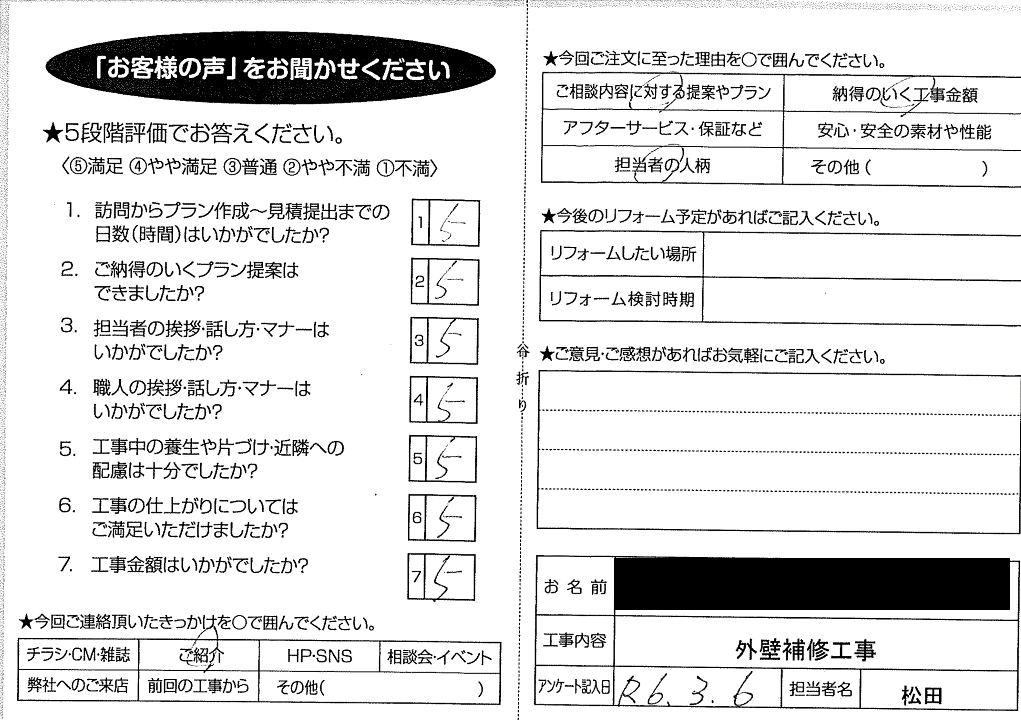 「お客様の声」をお聞かせください
★5段階評価でお答えください。
〈⑤満足 ④やや満足 ③普通 ②やや不満 ①不満〉
1. 訪問からプラン作成～見積提出までの
日数(時間)はいかがでしたか?
1 5
2. ご納得のいくプラン提案は
できましたか?
2 5
3. 担当者の挨拶・話し方・マナーは
いかがでしたか?
3 5
4. 職人の挨拶・話し方・マナーは
いかがでしたか?
4 5
5. 工事中の養生や片づけ・近隣への
配慮は十分でしたか?
5 5
6. 工事の仕上がりについては
ご満足いただけましたか?
6 5
7. 工事金額はいかがでしたか?
7 5
★今回ご連絡頂いたきっかけを○で囲んでください。
チラシ・CM・雑誌 ご紹介 HP・SNS 相談会・イベント
弊社へのご来店 前回の工事から その他( )
谷折り
★今回ご注文に至った理由を○で囲んでください。
ご相談内容に対する提案やプラン 納得のいく工事金額
アフターサービス・保証など 安心・安全の素材や性能
担当者の人柄 その他( )
★今後のリフォーム予定があればご記入ください。
リフォームしたい場所
リフォーム検討時期
★ご意見・ご感想があればお気軽にご記入ください。
お名前
工事内容 外壁補修工事
アンケート記入日 R6.3.6 担当者名 松田